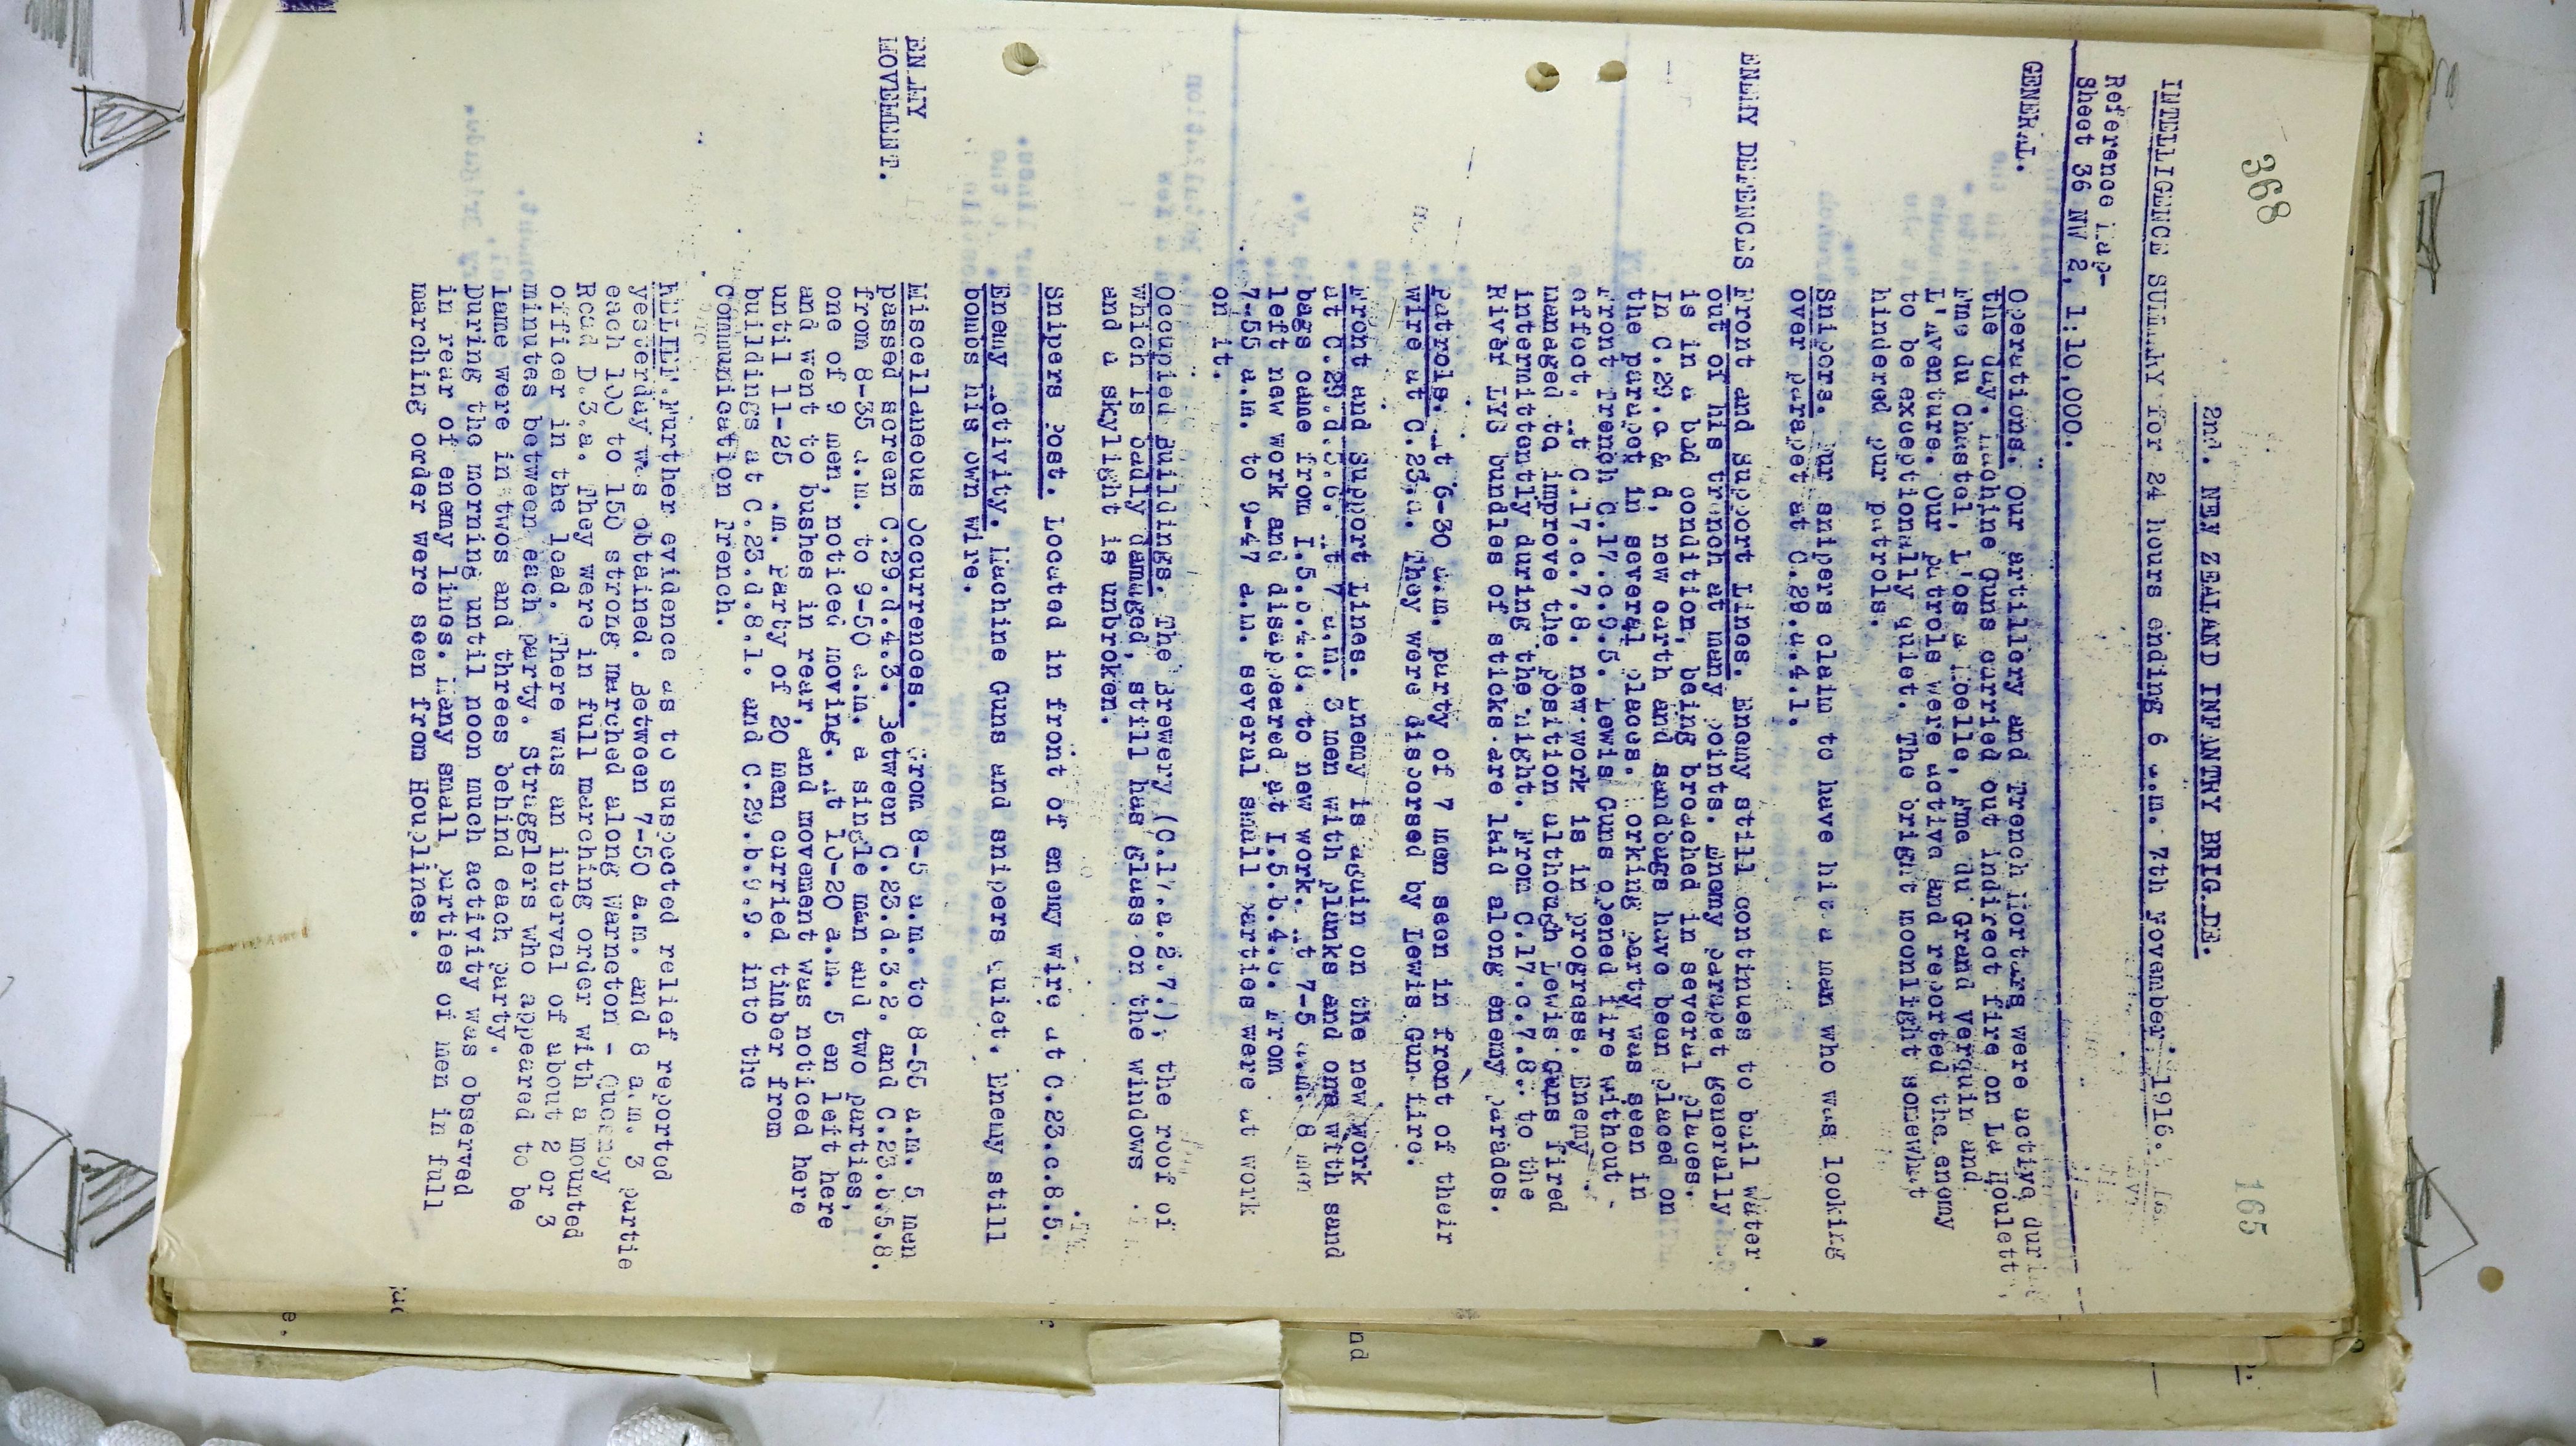 368
165
2nd. NEW ZEALAND INFANTRY BRIGADE.
INTELLIGENCE SUMMARY for 24 hours ending 6 a.m. 7th November 1916.
Reference Map-
Sheet 36 NW 2, 1:10,000.
GENERAL.
Operations. Our artillery and Trench Mortars were active during
the day. Machine Guns carried out indirect fire on La Houlett
Fme du Chastel, L'os a Moelle, Fme du Grand Verquin and
L'Aventure. Our patrols were active and reported the enemy
to be exceptionally quiet. The bright moonlight somewhat
hindered our patrols.
Snipers. Our snipers claim to have hit a man who was looking
over parapet at C.29.a.4.1.
ENEMY DEFENCES
Front and Support Lines. Enemy still continues to bail water
out of his trench at many points. Enemy parapet generally
is in a bad condition, being broached in several places.
In C.29.a & d, new earth and sandbags have been placed on
the parapet in several places. Working party was seen in
Front Trench C.17.c.9.5. Lewis Guns opened fire without
effect. At C.17.c.7.8. new work is in progress. Enemy
managed to improve the position although Lewis Guns fired
intermittently during the night. From C.17.c.7.8. to the
River LYS bundles of sticks are laid along enemy parados.
Patrols. At 6-30 a.m. party of 7 men seen in front of their
wire at C.23.a. They were dispersed by Lewis Gun fire.
Front and Support Lines. Enemy is again on the new work
at C.29.d. At 7 a.m. 3 men with planks and one with sand
bags came from I.5.b.4.8. to new work. At 7-5 a.m. 8 men
left new work and disappeared at I.5.b.4.8. From
7-55 a.m. to 9-47 a.m. several small parties were at work
on it.
Occupied Buildings. The Brewery (C.17.a.2.7.), the roof of
which is badly damaged, still has glass on the windows
and a skylight is unbroken.
Snipers Post. Located in front of enemy wire at C.23.c.8.5.
Enemy Activity. Machine Guns and snipers quiet. Enemy still
bombs his own wire.
ENEMY
MOVEMENT.
Miscellaneous Occurrences. From 8-5 a.m. to 8-55 a.m. 5 men
passed screen C.29.d.4.3. Between C.23.d.3.2. and C.23.b.5.8.
from 8-35 a.m. to 9-50 a.m. a single man and two parties,
one of 9 men, noticed moving. At 10-20 a.m. 5 en left here
and went to bushes in rear, and movement was noticed here
until 11-25 .m. Party of 20 men carried timber from
buildings at C.23.d.8.1. and C.29.b.9.9. into the
Communication Trench.
RELIEF. Further evidence as to suspected relief reported
yesterday was obtained. Between 7-50 a.m. and 8 a.m. 3 partie
each 100 to 150 strong marched along Warneton - Quesnoy
Road D.3.a. They were in full marching order with a mounted
officer in the lead. There was an interval of about 2 or 3
minutes between each party. Stragglers who appeared to be
lame were in twos and threes behind each party.
During the morning until noon much activity was observed
in rear of enemy lines. Many small parties of men in full
marching order were seen from Houplines.